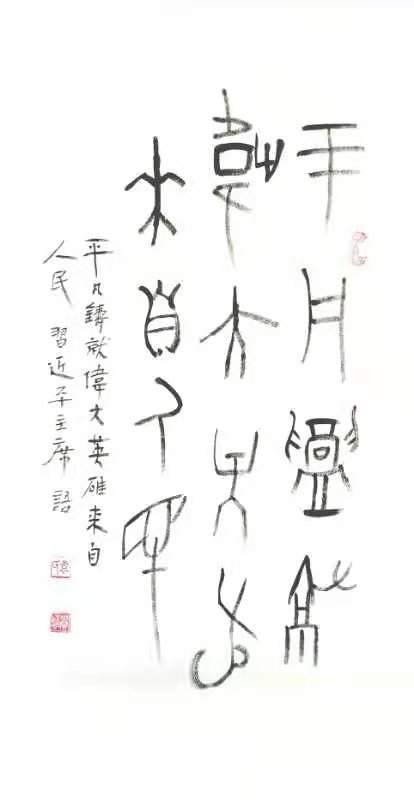 平凡鑄就
偉大英雄
來自人民
平凡鑄就偉大英雄来自
人民 習近平主席語